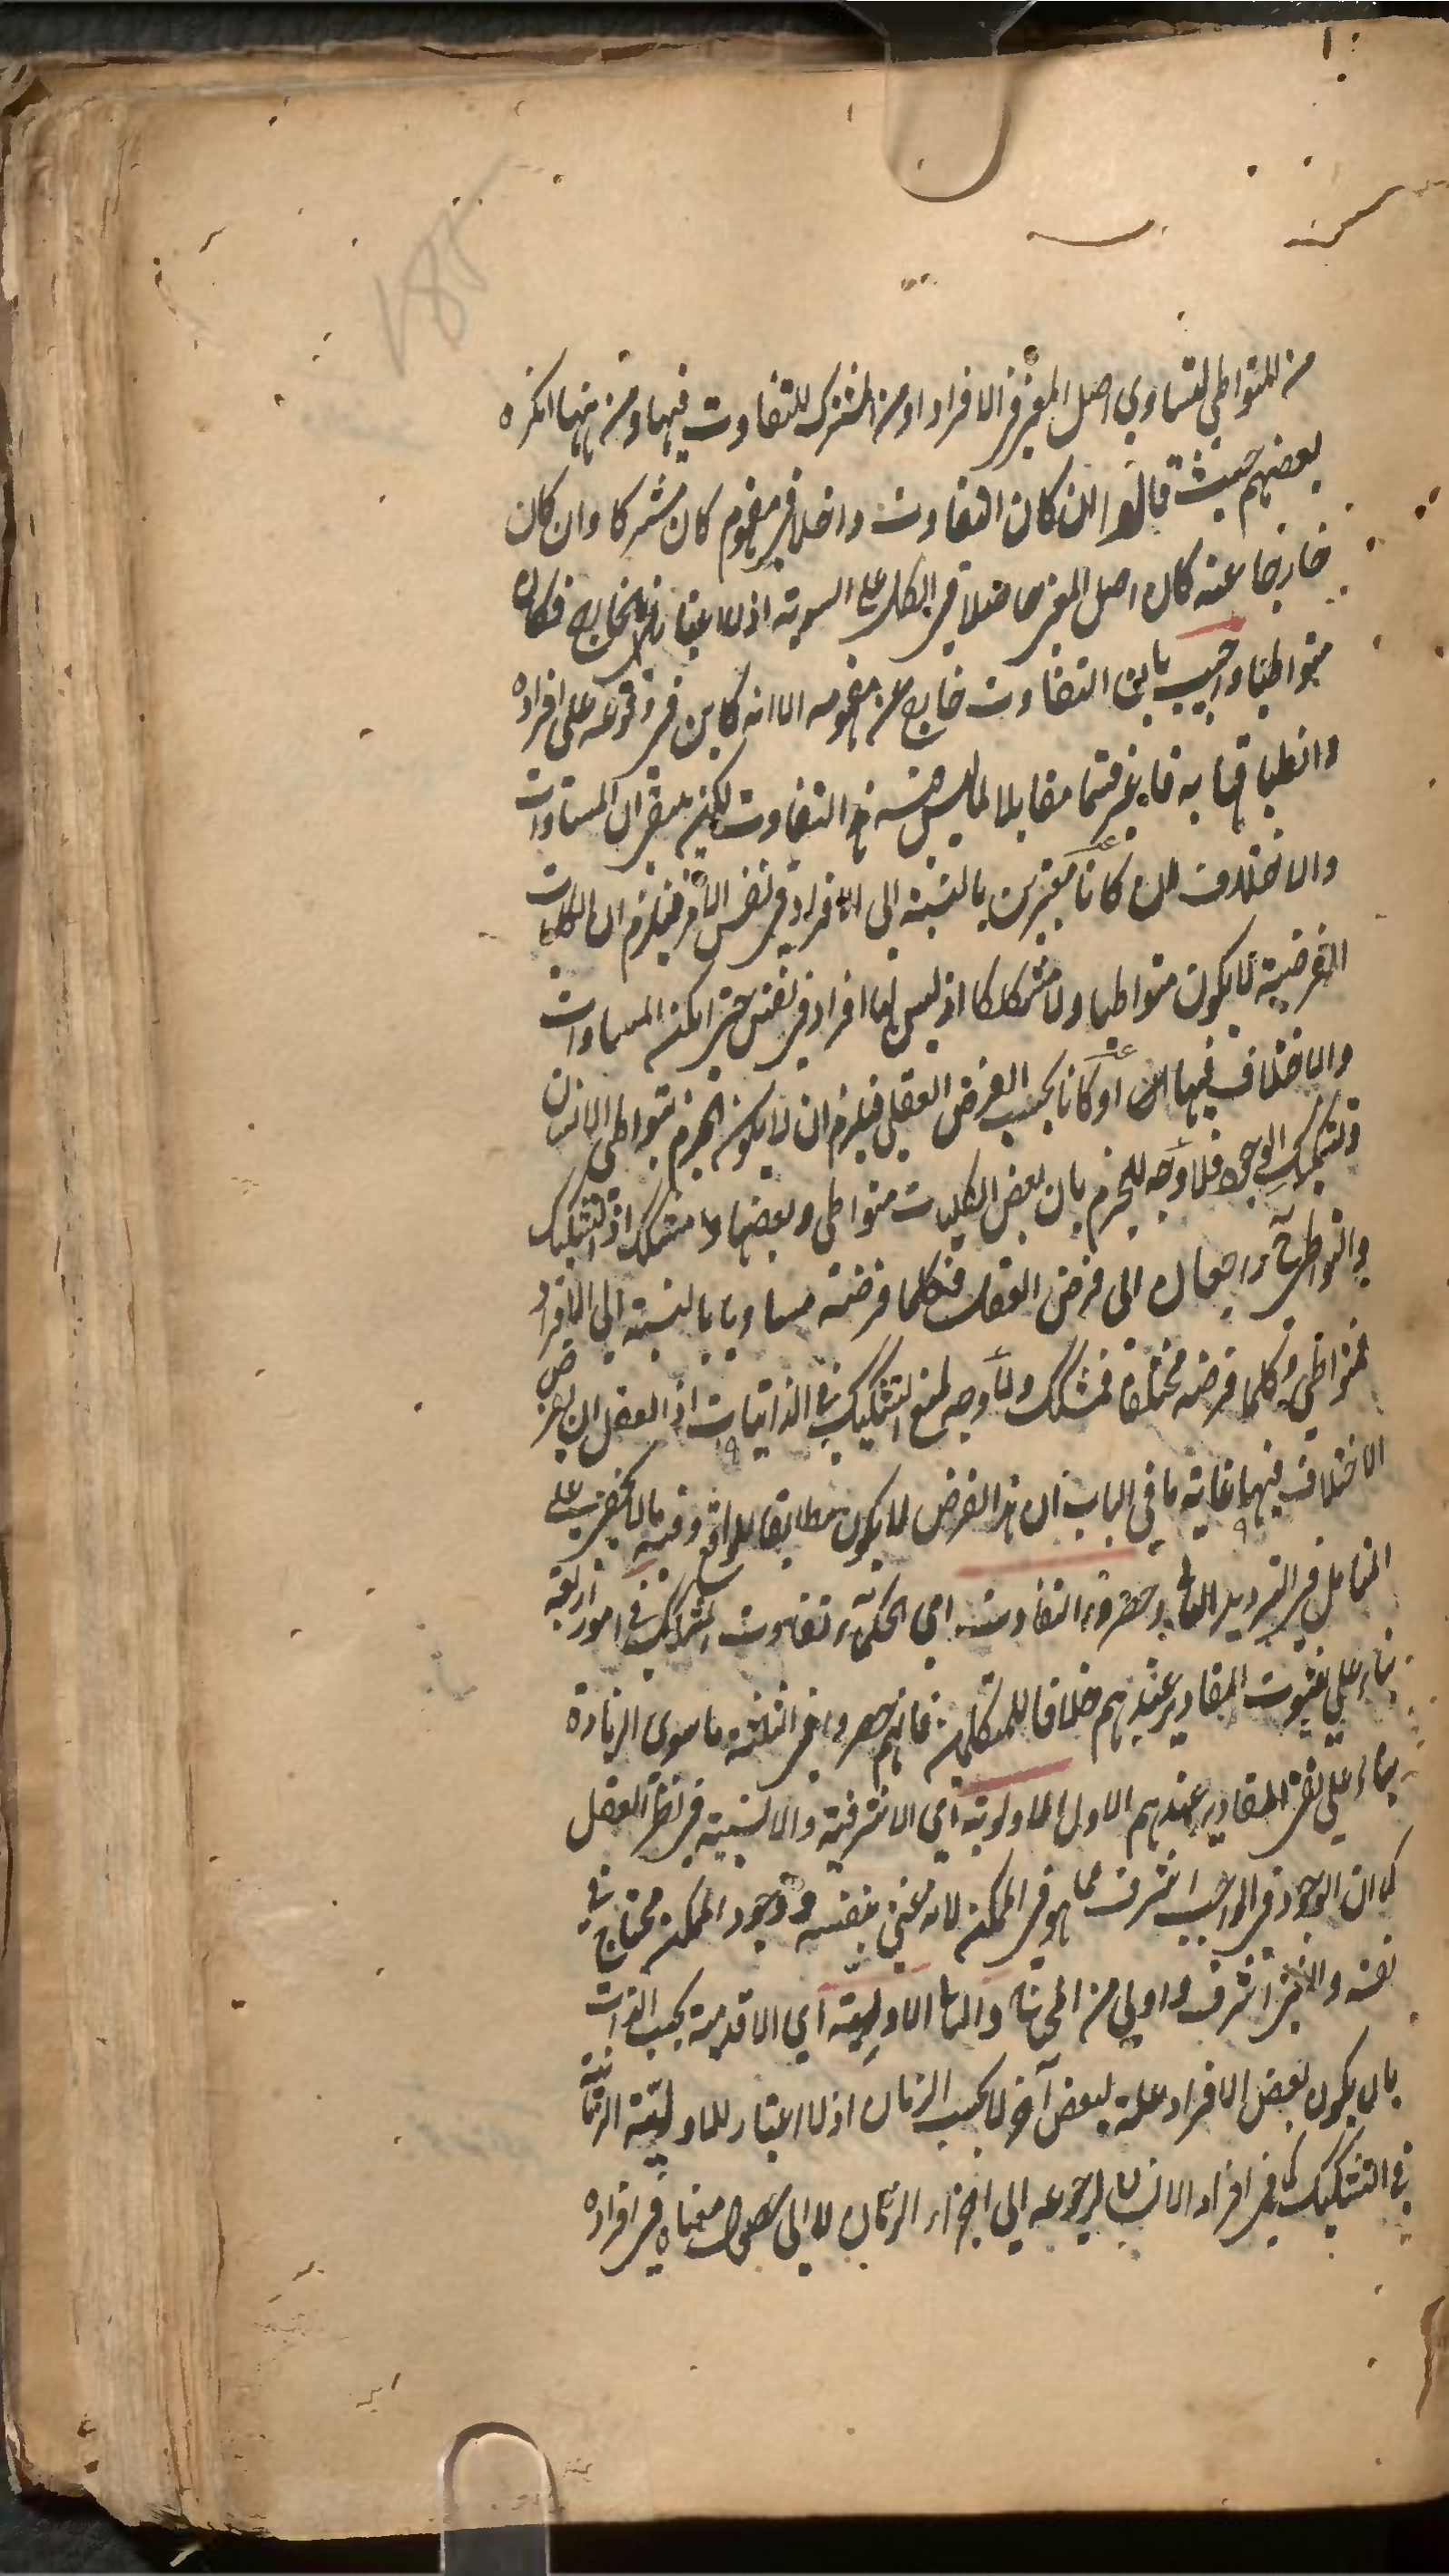 من المتواطي لتساوي اصل المعنى في الافراد او من المشترك للتفاوت فيها ومن ههنا انكره
بعضهم حيث قالوا ان كان التفاوت داخلا في مفهوم كان مشتركا وان كان
خارجا عنه كان اصل المعنى حاصلا في الكل على السوية اذ لا اعتبار بالخارج فكان
متواطيا واجيب بان التفاوت خارج عن مفهومه الا انه كاين في وقوعه على افراده
وانطباقها به فاعتبر قسما مقابلا لما ليس فيه هذا التفاوت لكن بقي ان المساوات
والاختلاف ان كانا معتبرين بالنسبة الى الافراد في نفس الامر فيلزم ان الكليات
الفرضية لا يكون متواطيا ولا مشككا اذ ليس لها افراد في نفس حتى امكنه المساوات
والاختلاف فيها او كانا بحسب الفرض العقلي فيلزم ان لا يكون الجزم بتواطي الانسان
وتشكيك الوجود فلا وجه للجزم بان بعض الكليات متواطي وبعضها مشكك اذ التشكيك
والتواطي راجعان الى فرض العقل فكلما فرضته مساويا بالنسبة الى الافراد
فمتواطي وكلما فرضته مختلفا فمشكك ولا وجه لمنع التشكيك في الذاتيات اذ العقل ان يفرض
الاختلاف فيها غاية ما في الباب ان هذا الفرض لا يكون مطابقا للواقع وفيه ما لا يخفى على
المتامل في الترديد الثاني وحصروا التفاوت اي الحكماء تفاوت المشكك في امور اربعة
بناء على ثبوت المقادير عندهم خلافا للمتكلمين فانهم حصروا في الثلثة ما سوى الزيادة
بناء على نفي المقادير عندهم الاول الاولوية اي الاشرفية والانسبية في نظر العقل
كما ان الوجود في الواجب اشرف مما هو في الممكن لانه غني بنفسه ووجود الممكن محتاج في
نفسه والغني اشرف واولى من المحتاج والثاني الاولية اي الاقدمية بحسب الذات
بان يكون بعض الافراد علة لبعض آخر لا بحسب الزمان اذ لا اعتبار للاولية الزمانية
في التشكيك كما في افراد الانسان لرجوعه الى اجزاء الزمان لا الى حصول معناه في افراده